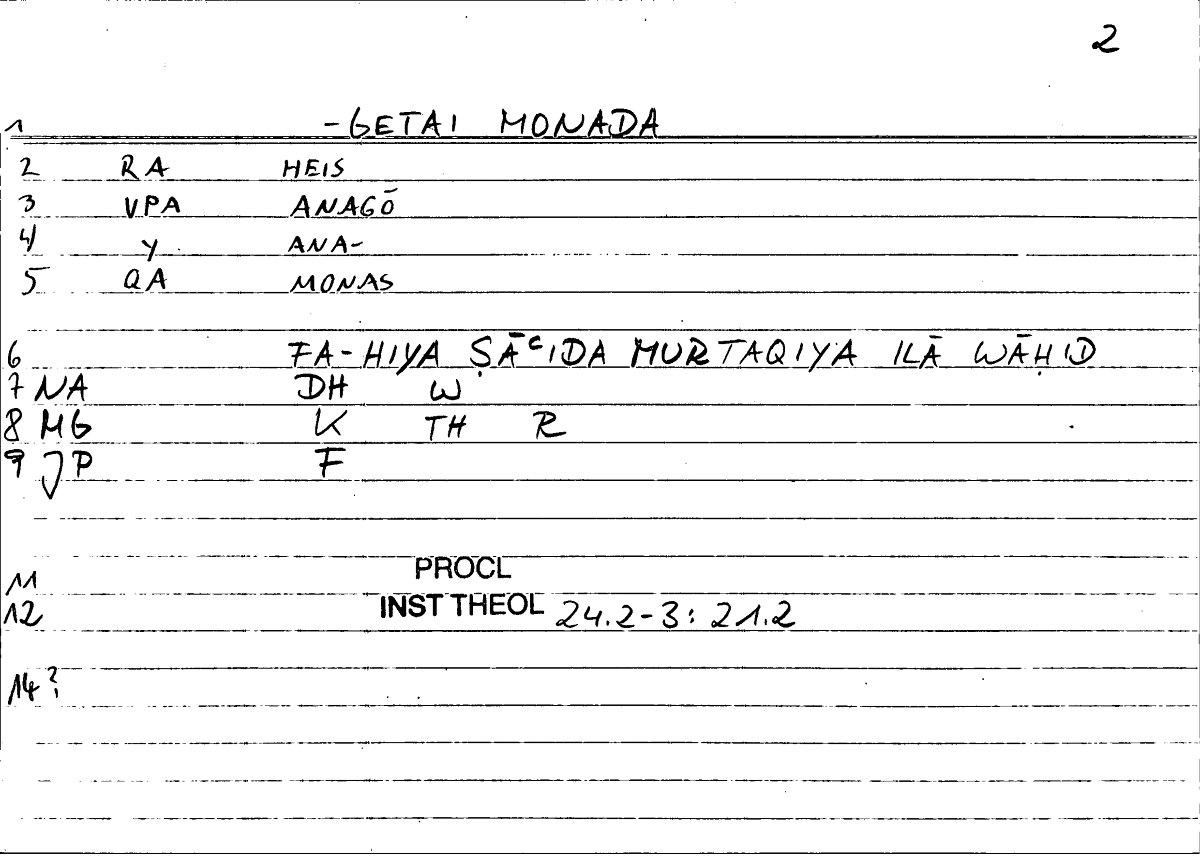 2
1 -GETAI MONADA
2 RA HEIS
3 VPA ANAGŌ
4 Y ANA-
5 QA MONAS
6 FA-HIYA ṢĀᶜIDA MURTAQIYA ILĀ WĀḤID
7 NA DH W
8 MG K TH R
9 JP F
11 PROCL
12 INST THEOL 24.2-3: 21.2
14?